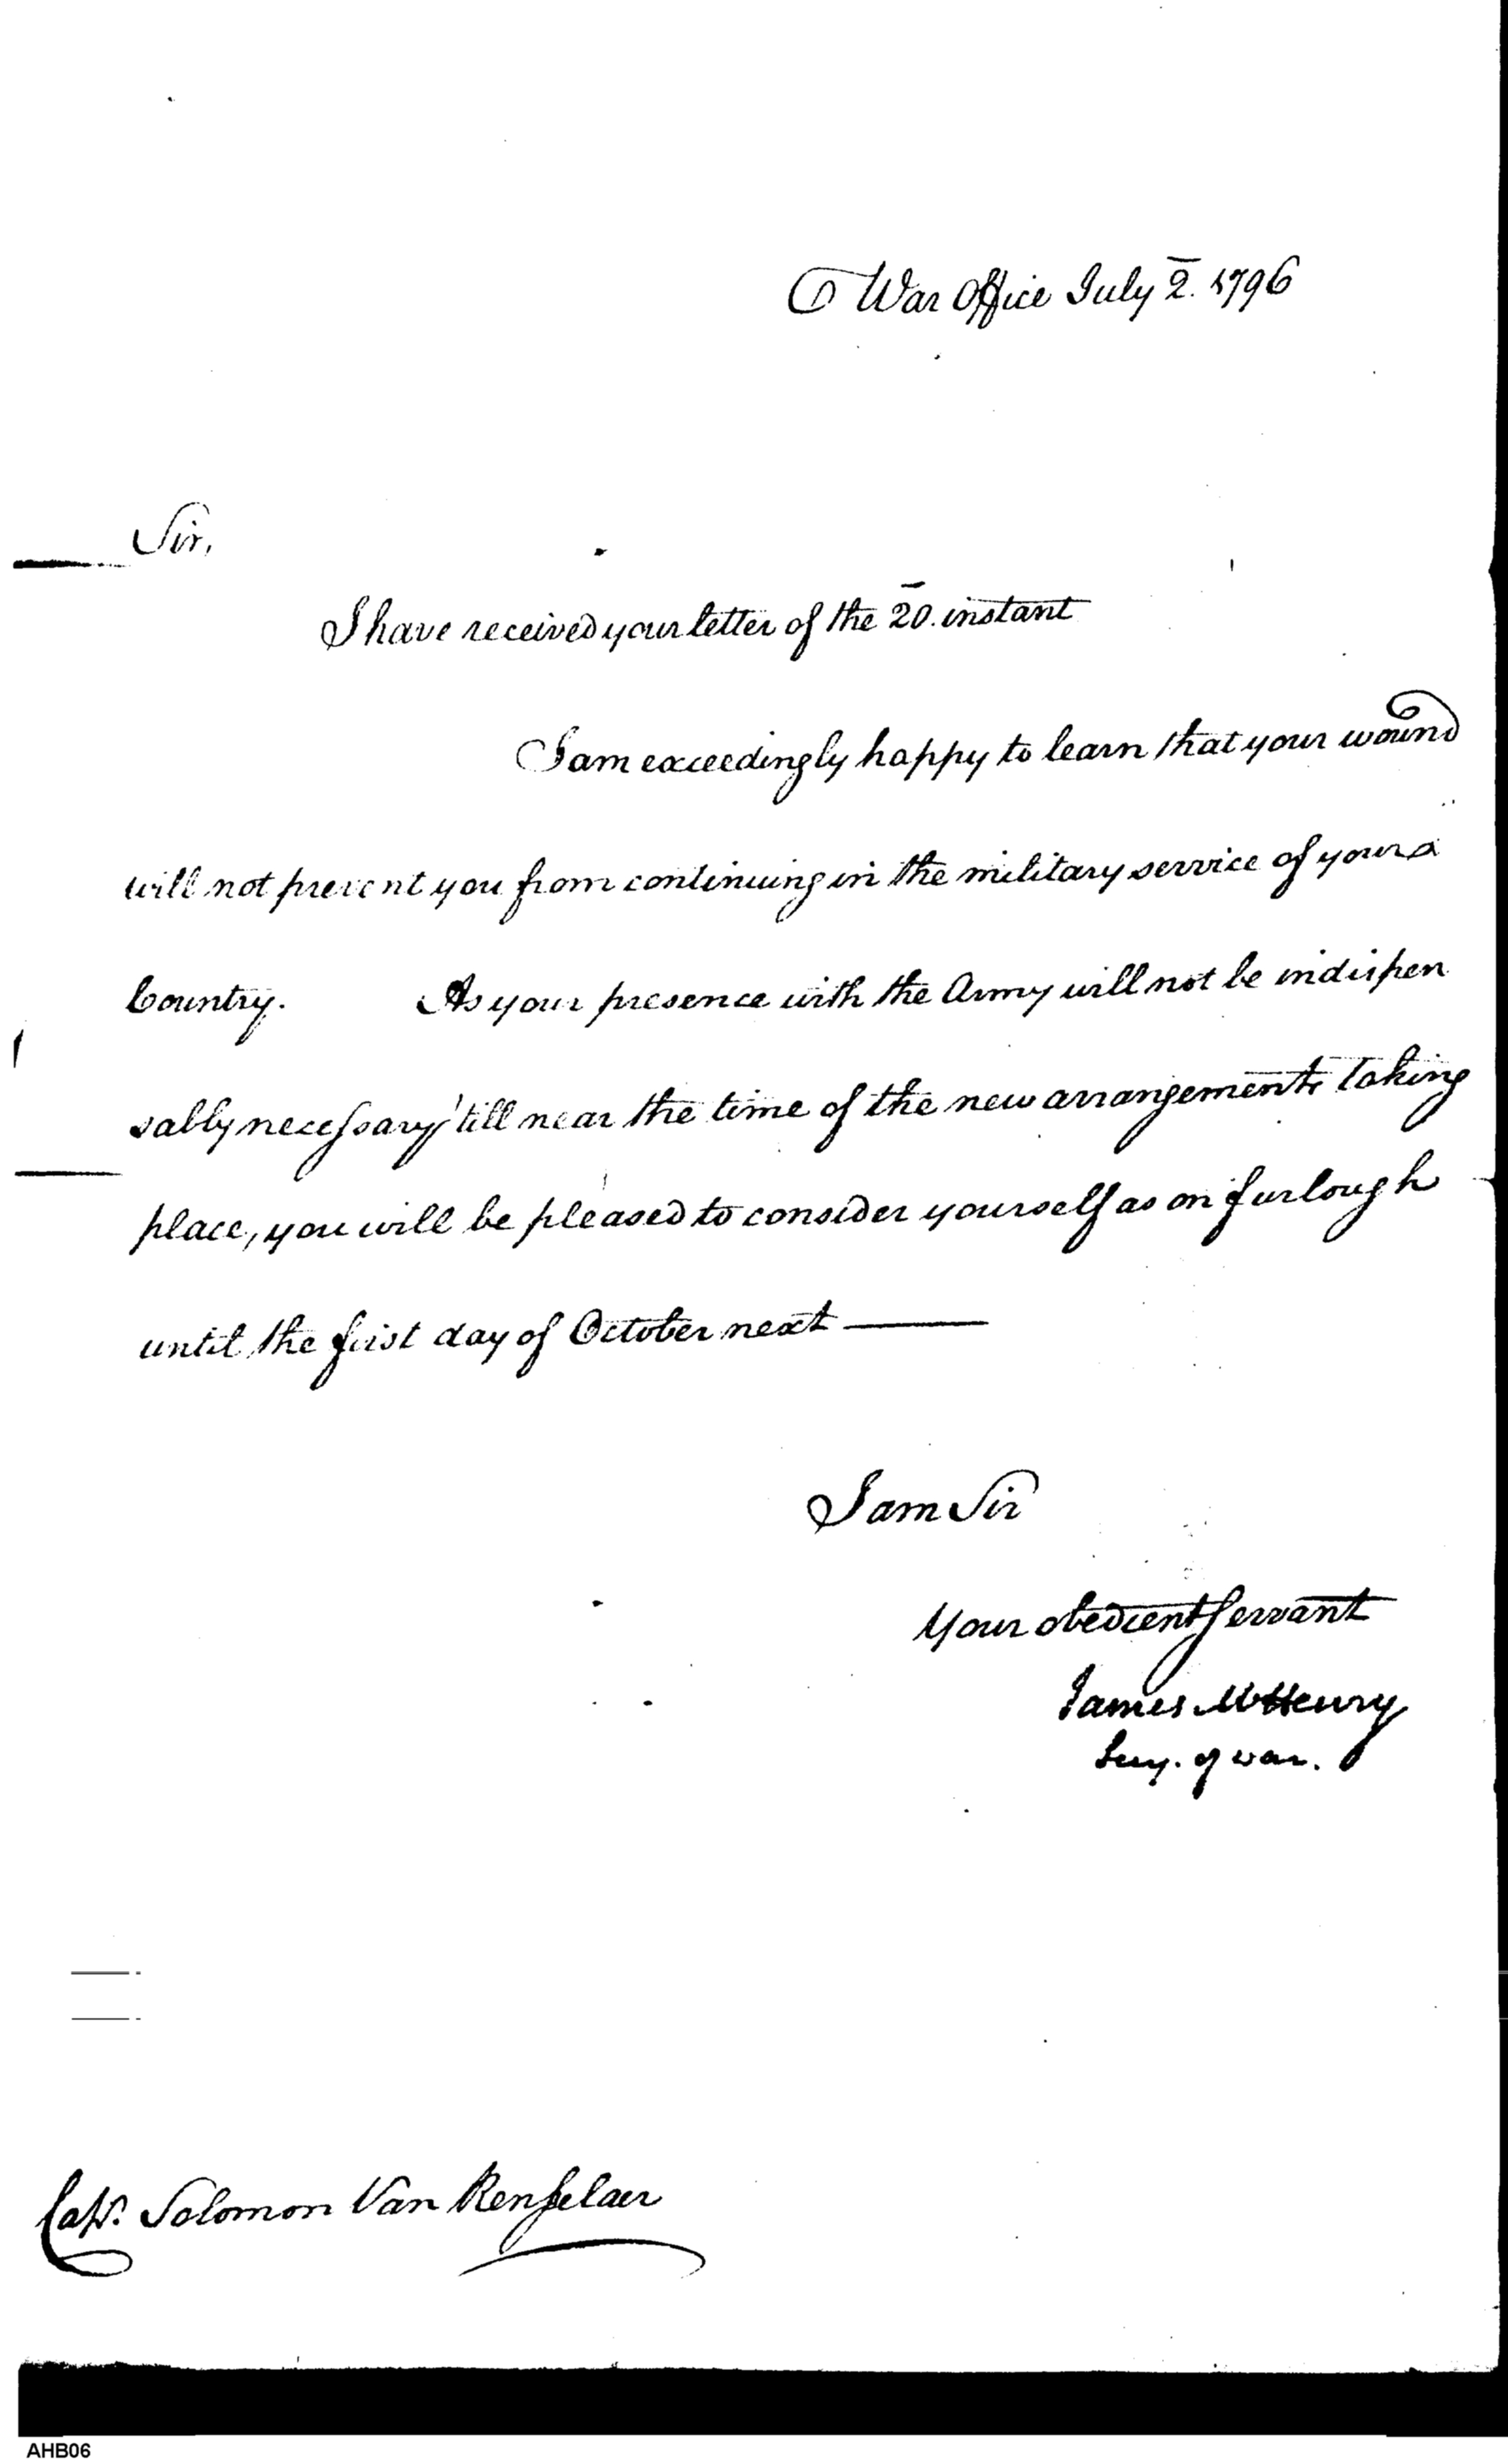 War Office July 2. 1796
Sir,
I have received your letter of the 20. instant
I am exceedingly happy to learn that your wound
will not prevent you from continuing in the military service of your
Country. As your presence with the Army will not be indispen
sably necessary 'till near the time of the new arrangements taking
place, you will be pleased to consider yourself as on furlough
until the first day of October next
I am Sir
Your obedient Servant
James McHenry
Secy. of war.
Capt. Solomon Van Rensselaer
AHB06